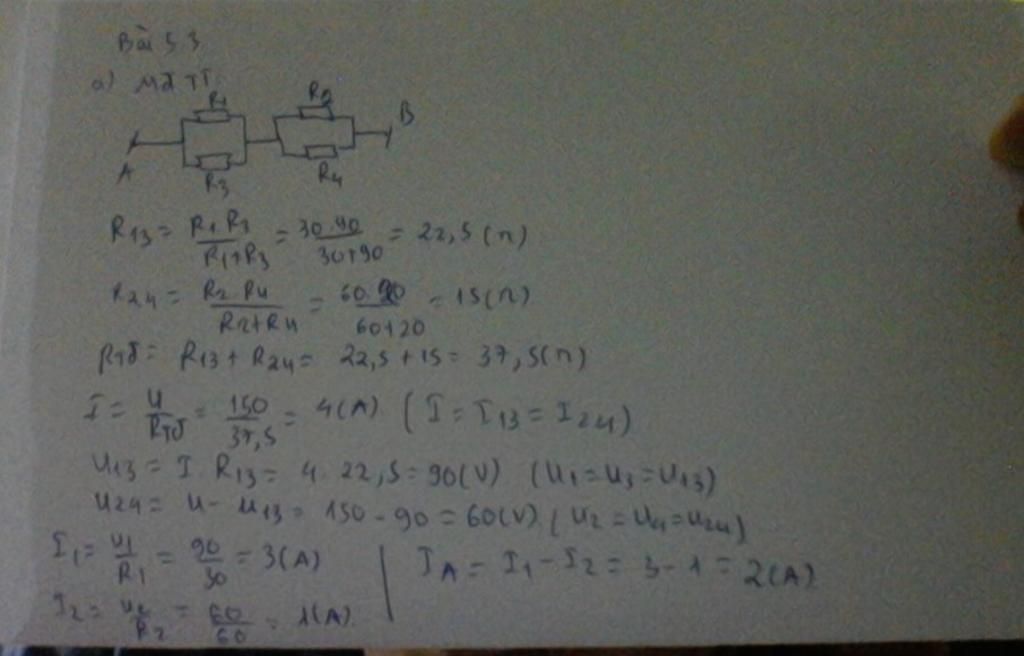 Bài 53
a) MĐTT
R1 R2 B
A R3 R4
R13 = R1.R3 / R1+R3 = 30.90 / 30+90 = 22,5 (Ω)
R24 = R2.R4 / R2+R4 = 60.20 / 60+20 = 15(Ω)
Rtđ = R13 + R24 = 22,5 + 15 = 37,5(Ω)
I = U / Rtđ = 150 / 37,5 = 4(A) (I = I13 = I24)
U13 = I.R13 = 4.22,5 = 90(V) (U1 = U3 = U13)
U24 = U - U13 = 150 - 90 = 60(V) (U2 = U4 = U24)
I1 = U1 / R1 = 90 / 30 = 3(A)
I2 = U2 / R2 = 60 / 60 = 1(A)
IA = I1 - I2 = 3 - 1 = 2(A)